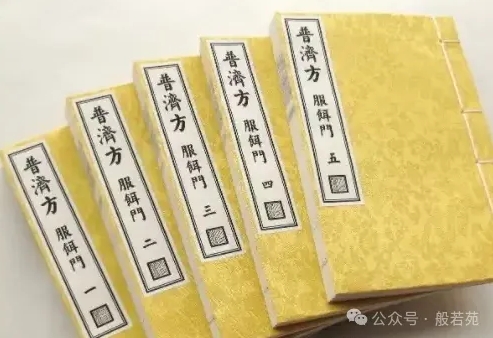 普濟方 服餌門 一
普濟方 服餌門 二
普濟方 服餌門 三
普濟方 服餌門 四
普濟方 服餌門 五
公众号·般若苑